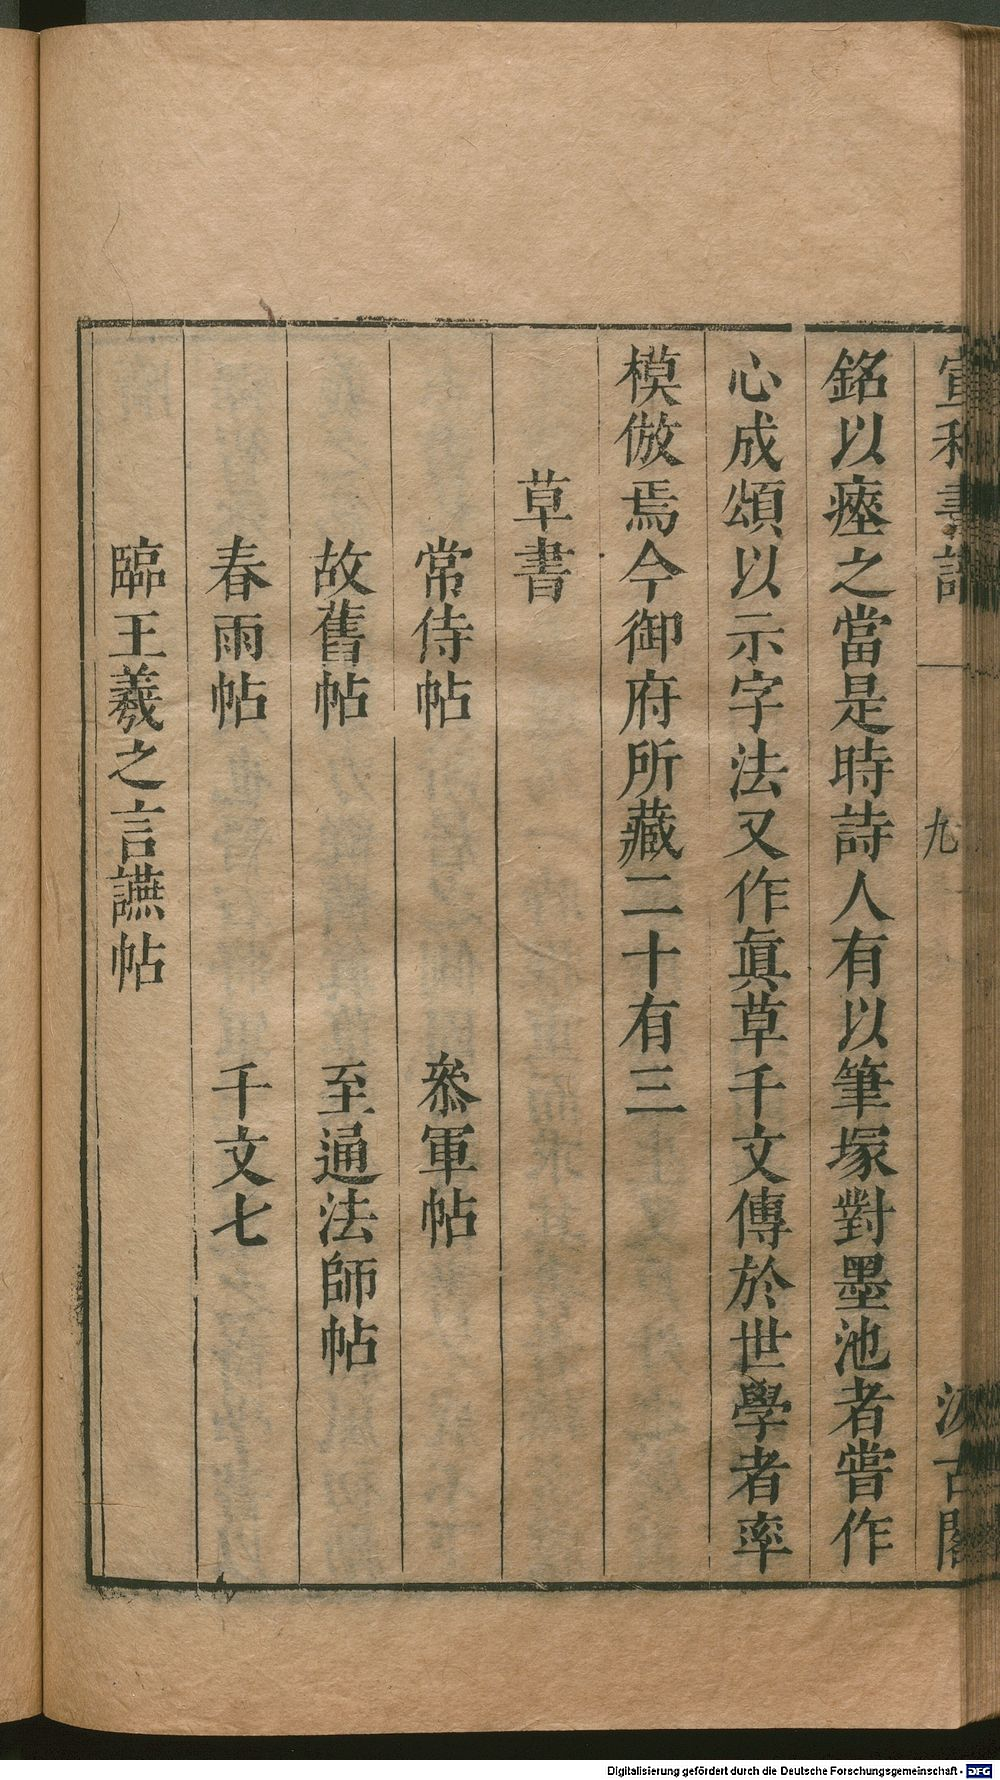 宣和書譜 九 汲古閣
銘以瘞之當是時詩人有以筆塚對墨池者嘗作
心成頌以示字法又作眞草千文傳於世學者率
模倣焉今御府所藏二十有三
草書
常侍帖 叅軍帖
故舊帖 至通法師帖
春雨帖 千文七
臨王羲之言讌帖
Digitalisierung gefördert durch die Deutsche Forschungsgemeinschaft - DFG